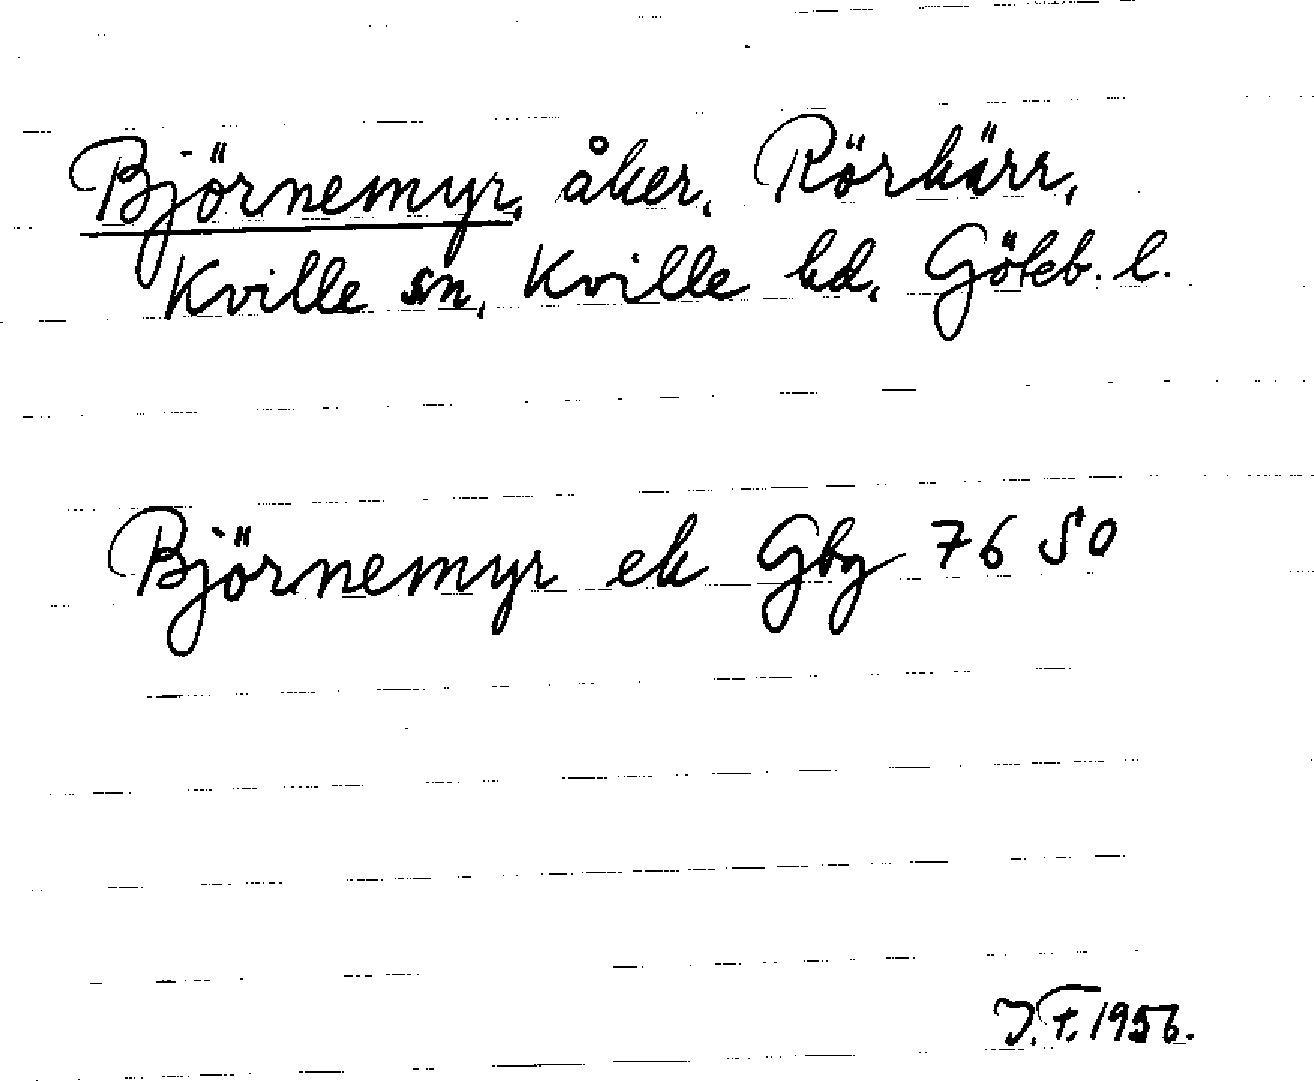 Björnemyr, åker, Rörkärr,
Kville sn, Kville hd, Göteb. l.
Björnemyr ek Gbg 76 50
J.F. 1956.